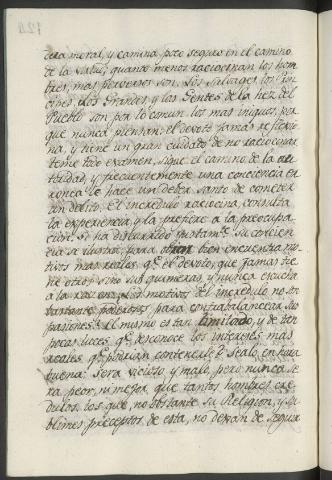 124
dera moral, y camina poco seguro en el camino
de la virtud; quanto menos raciocinan los hom-
bres, mas perversos son. Los salvages los Prin-
cipes, los Grandes y las Gentes de la hez del
Pueblo son por lo comun los mas iniquos, por
que nunca piensan: el devoto jamas reflexio-
na, y tiene un gran cuidado de no raciocinar
teme todo examen, sigue el camino de la au-
toridad, y frecuentemente una conciencia er-
ronea le hace un deber santo de cometer
un delito. El incredulo raciocina, consulta
la experiencia, y la prefiere a la preocupa-
cion. Si ha discurrido justamte su concien-
cia se ilustra, para obrar bien encuentra mo-
tivos mas reales qe el devoto, que jamas tie-
ne otros sino sus quimeras, y nunca escucha
a la razon. Los motivos del incredulo no son
bastante poderosos, para contrabalancear sus
pasiones? El mismo es tan limitado, y de tan
pocas luces, qe desconoce los intereses mas
reales, qe podrian contenerle? Sealo en hora
buena: Sera vicioso y malo, pero nunca se-
ra peor, ni mejor que tantos hombres cre-
dulos, los que, no obstante su Religion, y su-
blimes preceptos de esta, no dexan de seguir